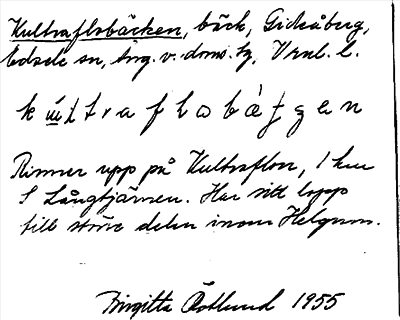 Kultraflobäcken, bäck, Gideåberg,
Edsele sn, Ång. v. doms. tg, Vnl. l.
Rinner upp på Kultraflon, 1 km
S Långtjärnen. Har sitt lopp
till större delen inom Helgum.
Birgitta Östlund 1955